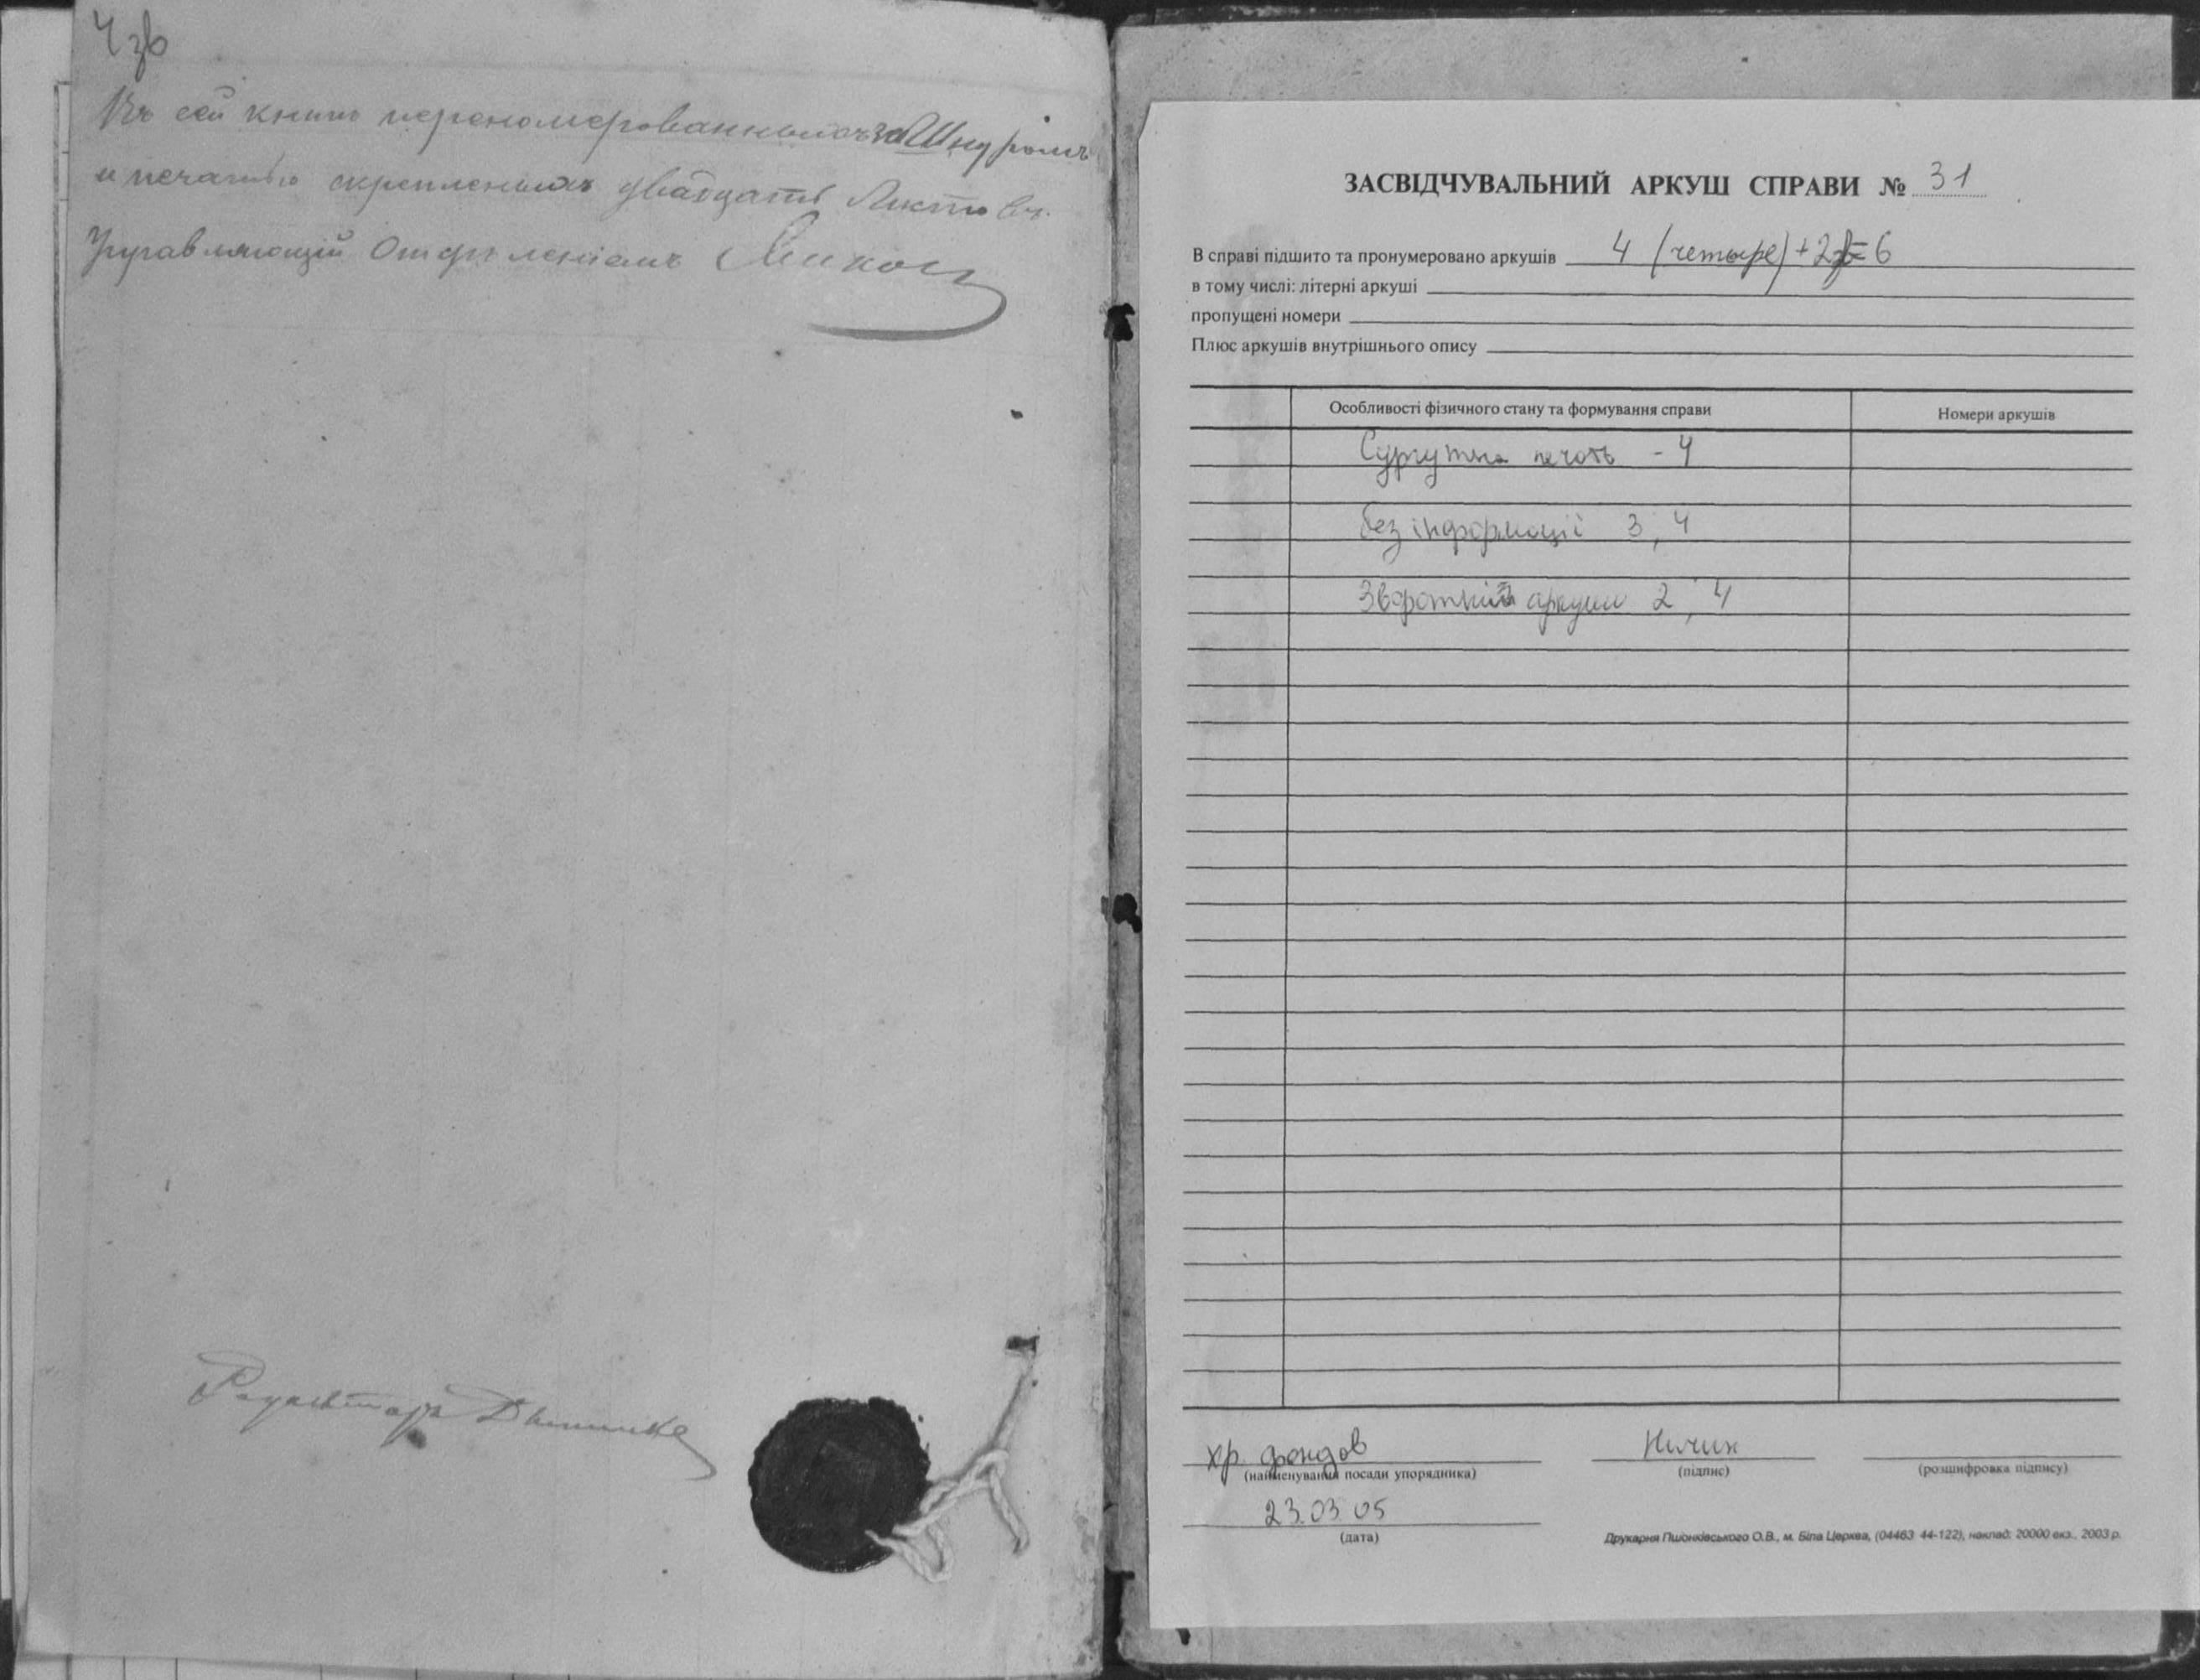 4 зв
Въ сей книгѣ перенумерованныхъ за Шнуромъ
и печатью скрепленныхъ двадцать Листовъ.
Управляющій Отдѣленіемъ
Редакторъ
ЗАСВІДЧУВАЛЬНИЙ АРКУШ СПРАВИ № 31
В справі підшито та пронумеровано аркушів 4 (четыре) + 2 зв = 6
в тому числі: літерні аркуші
пропущені номери
Плюс аркушів внутрішнього опису
Особливості фізичного стану та формування справи Номери аркушів
Сургутна печать - 4
без інформації 3, 4
Зворотній аркуш 2, 4
хр. фондов
(найменування посади упорядника) (підпис) (розшифровка підпису)
23.03 05
(дата)
Друкарня Пшонківського О.В., м. Біла Церква, (04463 44-122), наклад: 20000 екз., 2003 р.